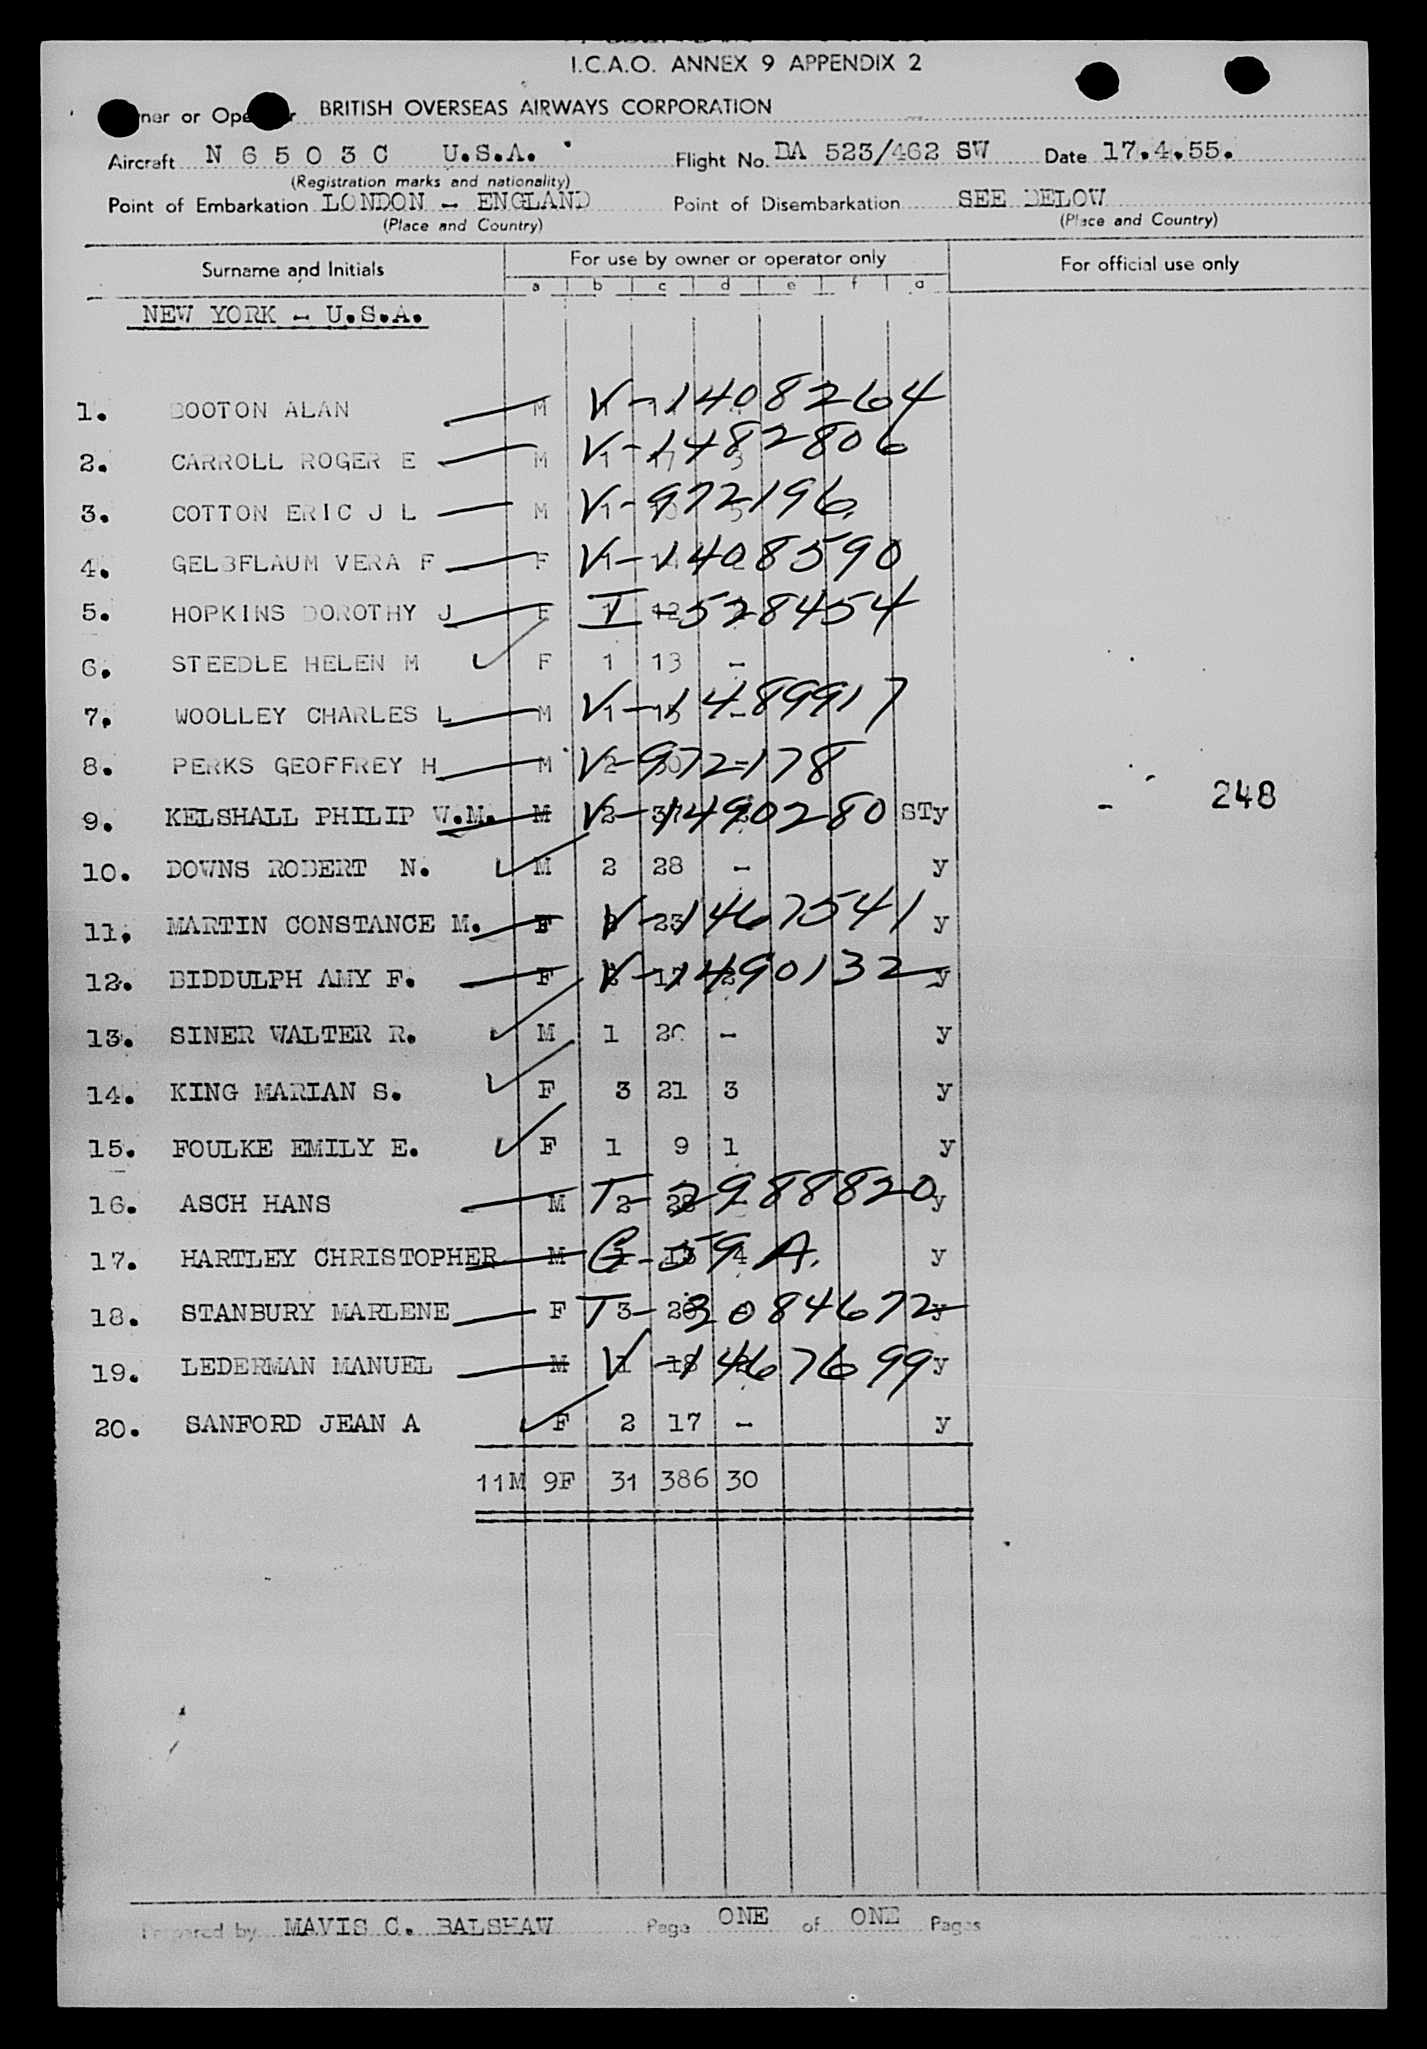 I.C.A.O. ANNEX 9 APPENDIX 2
BRITISH OVERSEAS AIRWAYS CORPORATION
Aircraft N 6 5 0 3 C U.S.A. Flight No. BA 523/462 SW Date 17.4.55.
(Registration marks and nationality)
Point of Embarkation LONDON - ENGLAND Point of Disembarkation SEE BELOW
(Place and Country) (Place and Country)
Surname and Initials For use by owner or operator only For official use only
a b c d e f g
NEW YORK - U.S.A.
1. BOOTON ALAN M V-1408264
2. CARROLL ROGER E M 1 17 3 V-1482806
3. COTTON ERIC J L M V-972196
4. GELBFLAUM VERA F F V-1408590
5. HOPKINS DOROTHY J F I-528454
6. STEEDLE HELEN M F 1 13 -
7. WOOLLEY CHARLES L M 1 15 - V-1489917
8. PERKS GEOFFREY H M 2 30 - V-972178
9. KELSHALL PHILIP W.M. M V-1490280 STy 248
10. DOWNS ROBERT N. M 2 28 - y
11. MARTIN CONSTANCE M. F V-1467541 y
12. BIDDULPH AMY F. F V-1490132 y
13. SINER WALTER R. M 1 20 - y
14. KING MARIAN S. F 3 21 3 y
15. FOULKE EMILY E. F 1 9 1 y
16. ASCH HANS M 2 28 T-2988820 y
17. HARTLEY CHRISTOPHER M G-59A. y
18. STANBURY MARLENE F 3 T-3084672 y
19. LEDERMAN MANUEL M 1 18 V-1467699 y
20. SANFORD JEAN A F 2 17 - y
11M 9F 31 386 30
Prepared by MAVIS C. BALSHAW Page ONE of ONE Pages